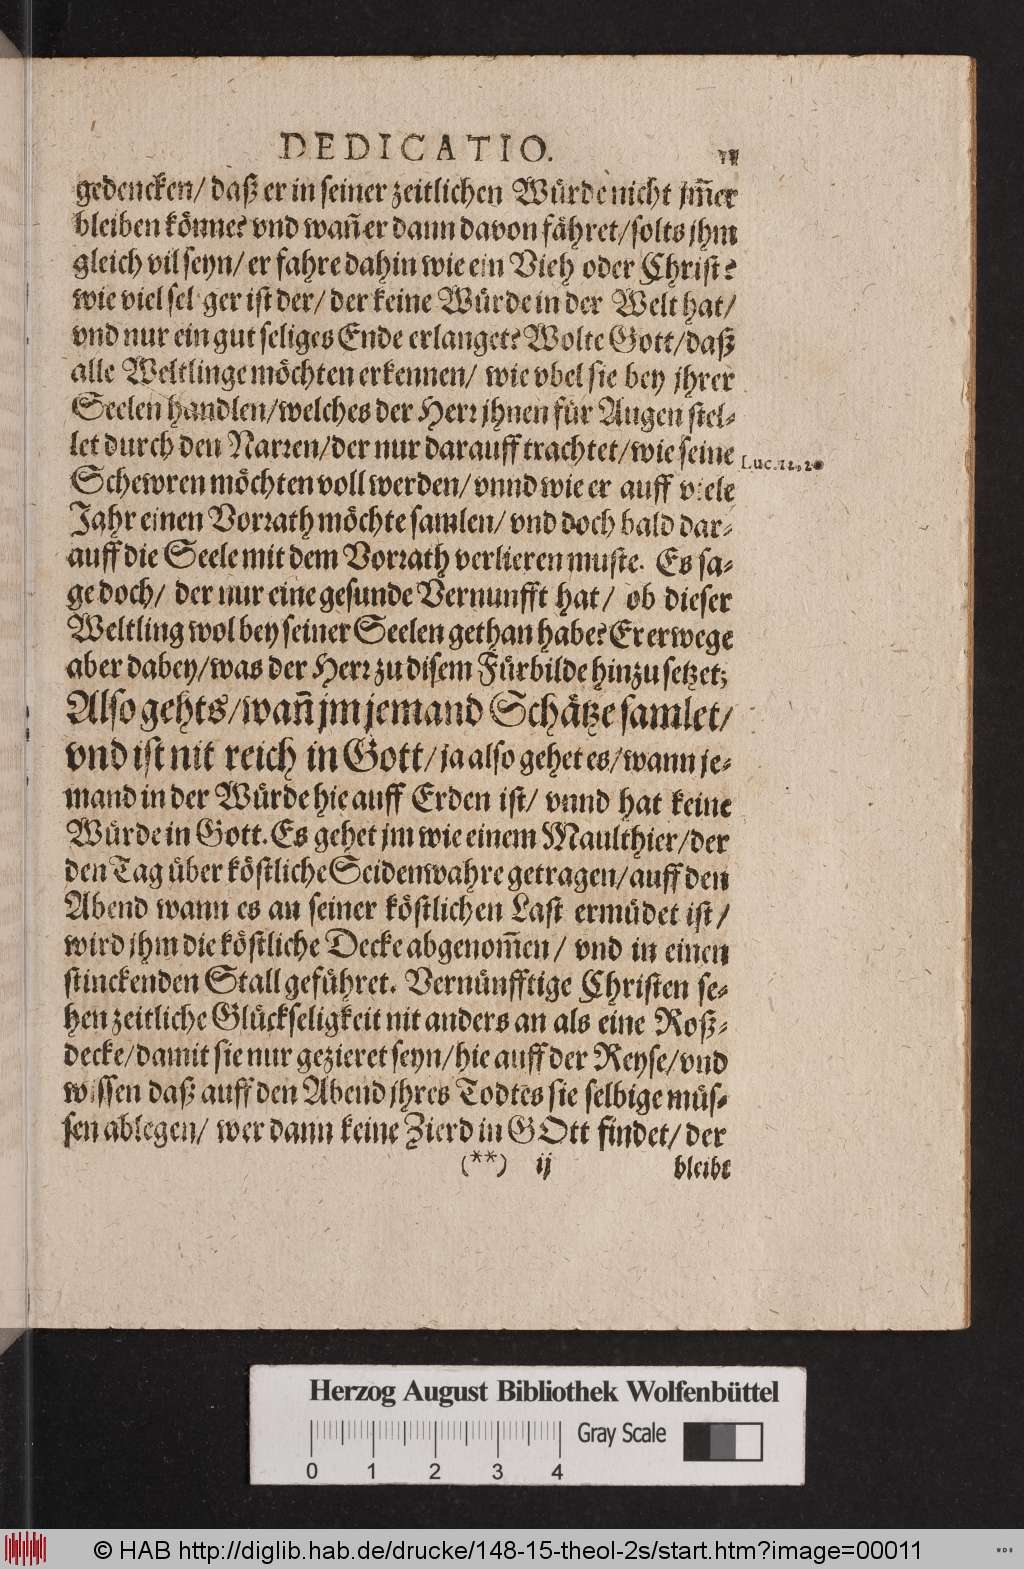 DEDICATIO.
gedencken/ daß er in seiner zeitlichen Würde nicht jm̃er
bleiben könne? vnd wañ er dann davon fähret/ solts jhm
gleich vil seyn/ er fahre dahin wie ein Vieh oder Christ?
wie viel sel ger ist der/ der keine Würde in der Welt hat/
vnd nur ein gut seliges Ende erlanget? Wolte Gott/ daß
alle Weltlinge möchten erkennen/ wie vbel sie bey jhrer
Seelen handlen/ welches der Herr jhnen für Augen stel-
let durch den Narren/ der nur darauff trachtet/ wie seine
Luc. 12. 20
Schewren möchten voll werden/ vnnd wie er auff viele
Jahr einen Vorrath möchte samlen/ vnd doch bald dar-
auff die Seele mit dem Vorrath verlieren muste. Es sa-
ge doch/ der nur eine gesunde Vernunfft hat/ ob dieser
Weltling wol bey seiner Seelen gethan habe? Er erwege
aber dabey/ was der Herr zu disem Fürbilde hinzu setzet;
Also gehts/ wañ jm jemand Schätze samlet/
vnd ist nit reich in Gott/ ja also gehet es/ wann je-
mand in der Würde hie auff Erden ist/ vnnd hat keine
Würde in Gott. Es gehet jm wie einem Maulthier/ der
den Tag über köstliche Seidenwahre getragen/ auff den
Abend wann es an seiner köstlichen Last ermüdet ist/
wird jhm die köstliche Decke abgenom̃en/ vnd in einen
stinckenden Stall geführet. Vernünfftige Christen se-
hen zeitliche Glückseligkeit nit anders an als eine Roß-
decke/ damit sie nur gezieret seyn/ hie auff der Reyse/ vnd
wissen daß auff den Abend jhres Todtes sie selbige müs-
sen ablegen/ wer dann keine Zierd in GOtt findet/ der
(**) ij bleibt
Herzog August Bibliothek Wolfenbüttel
Gray Scale
0 1 2 3 4
© HAB http://diglib.hab.de/drucke/148-15-theol-2s/start.htm?image=00011